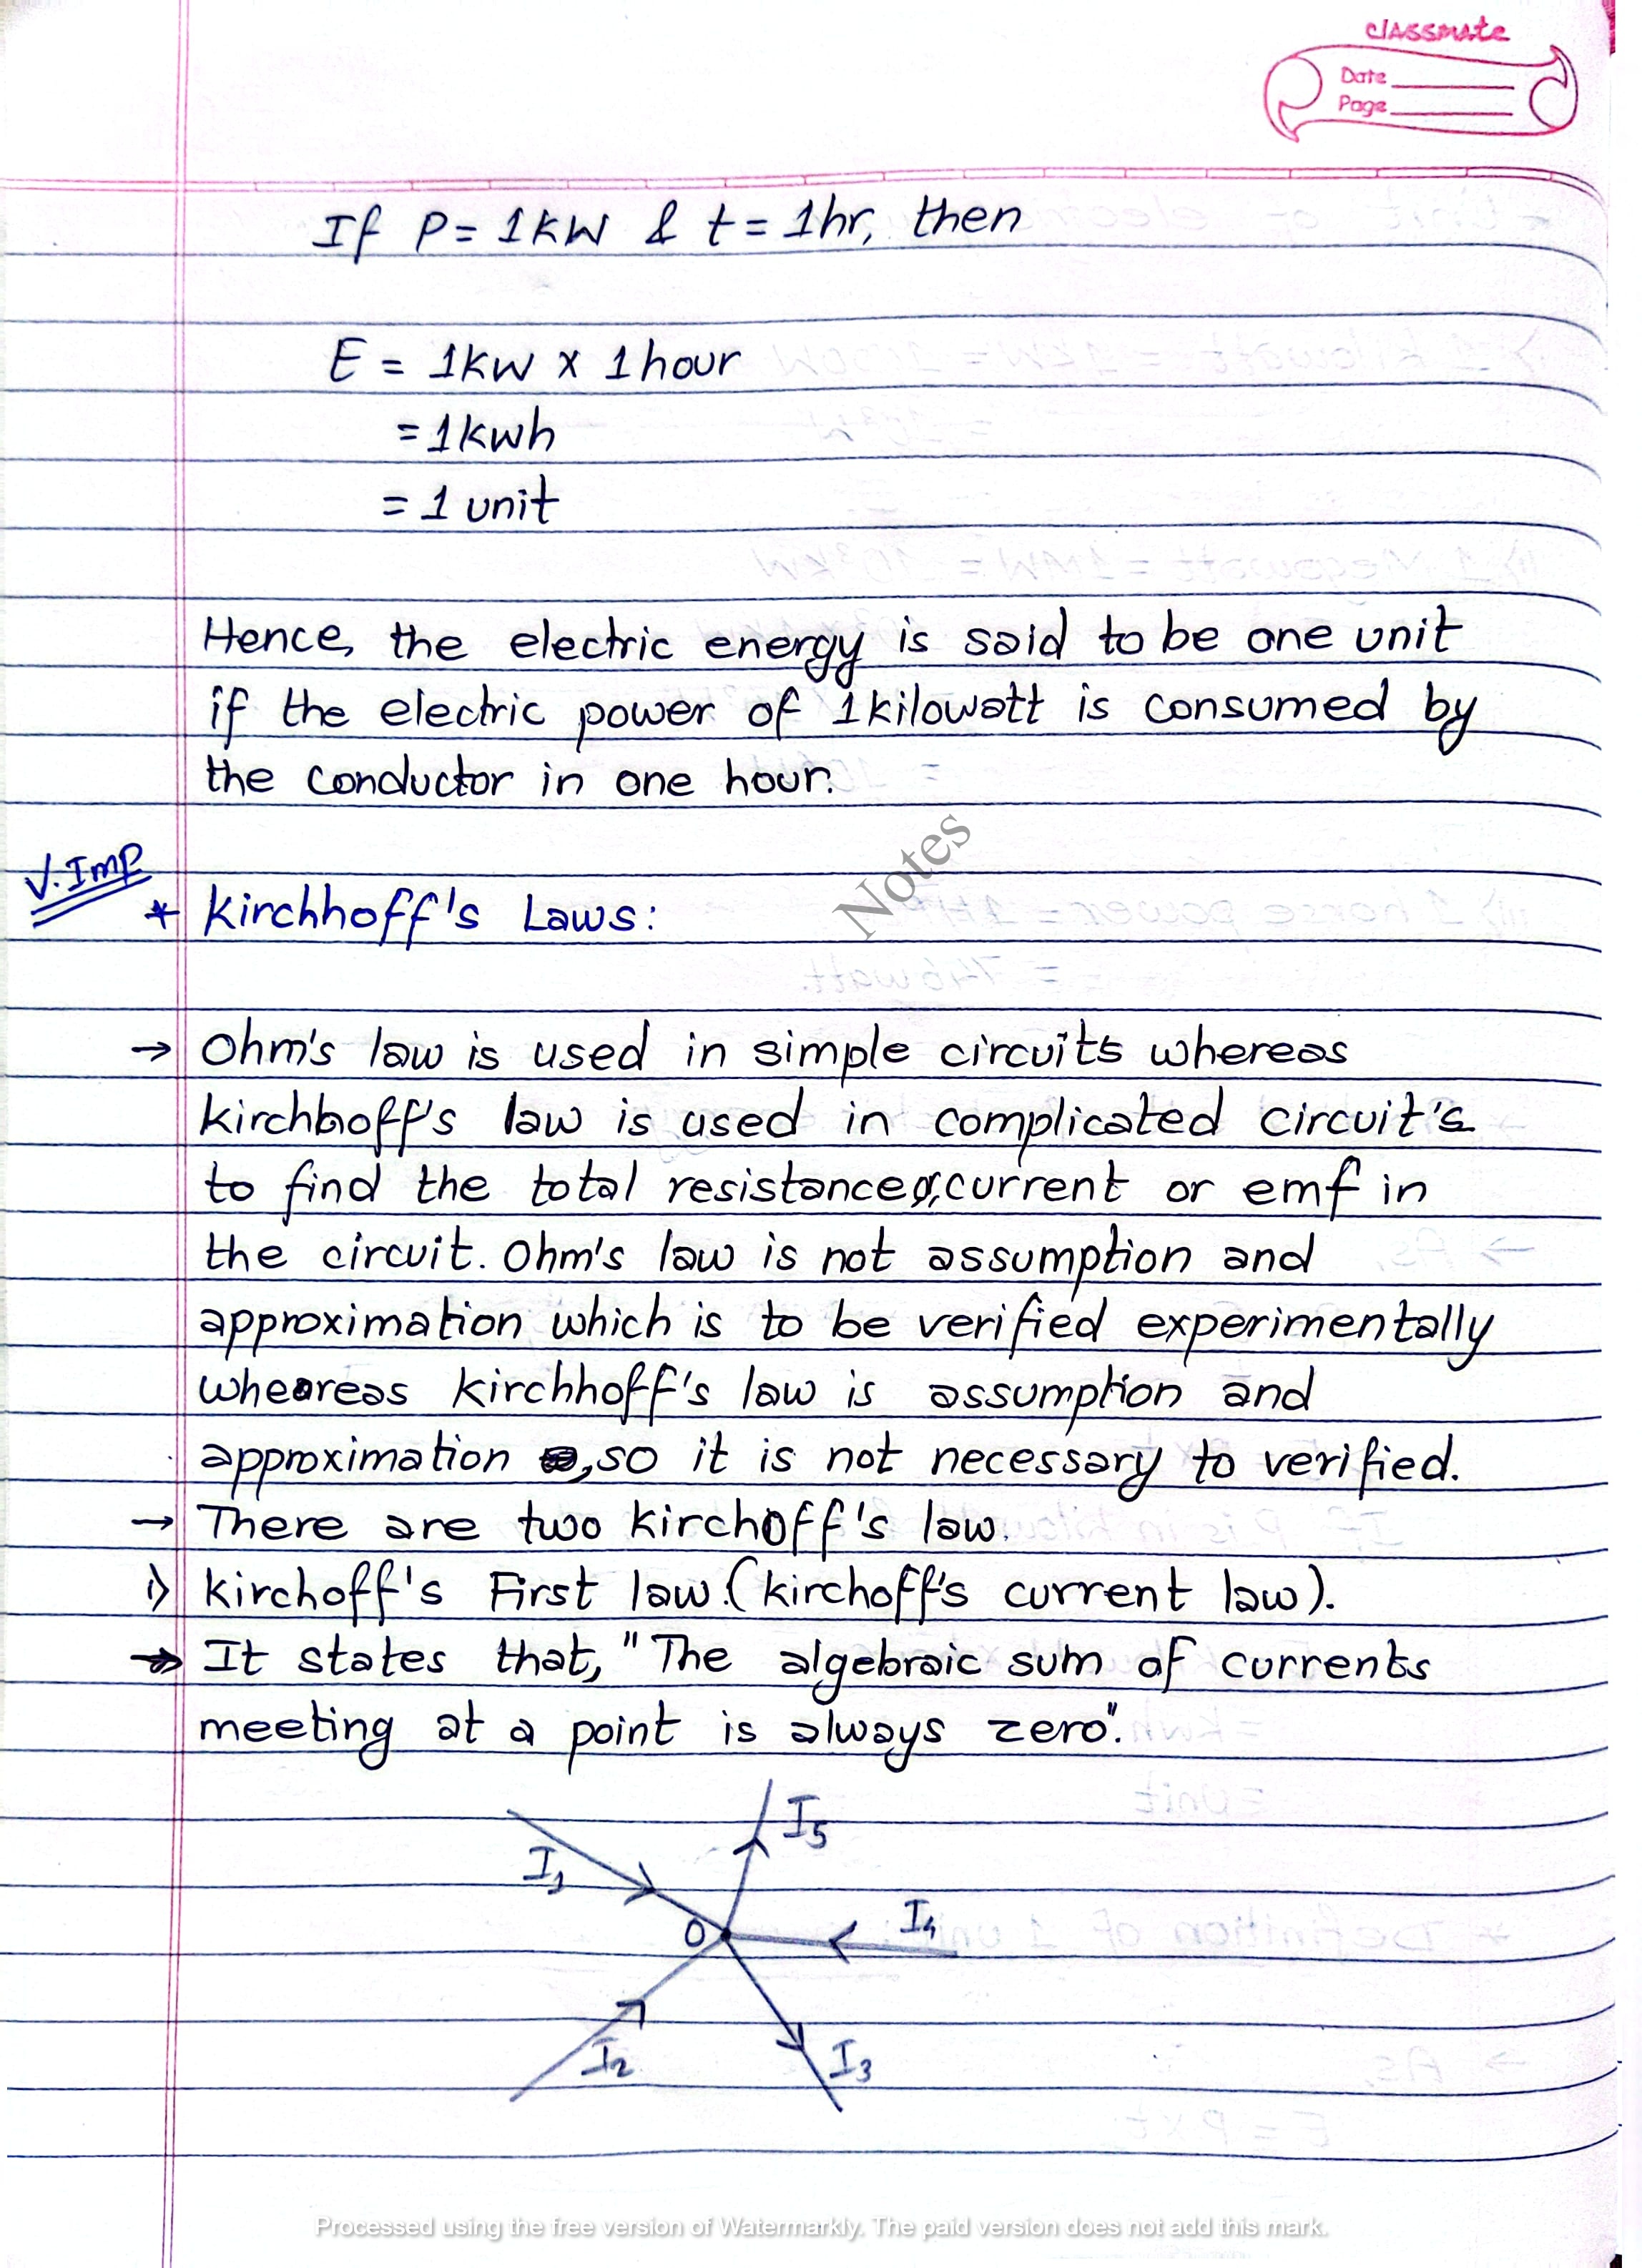 classmate
Date
Page
If P = 1KW & t = 1hr, then
E = 1kw x 1 hour
= 1kwh
= 1 unit
Hence, the electric energy is said to be one unit
if the electric power of 1kilowatt is consumed by
the conductor in one hour.
Notes
V. Imp
* Kirchhoff's Laws:
→ Ohm's law is used in simple circuits whereas
kirchhoff's law is used in complicated circuit's
to find the total resistance, current or emf in
the circuit. Ohm's law is not assumption and
approximation which is to be verified experimentally
wheareas kirchhoff's law is assumption and
approximation ,so it is not necessary to verified.
→ There are two kirchoff's law.
i) kirchoff's First law. (kirchoff's current law).
→ It states that, "The algebraic sum of currents
meeting at a point is always zero".
I5
I1
I4
O
I2
I3
Processed using the free version of Watermarkly. The paid version does not add this mark.